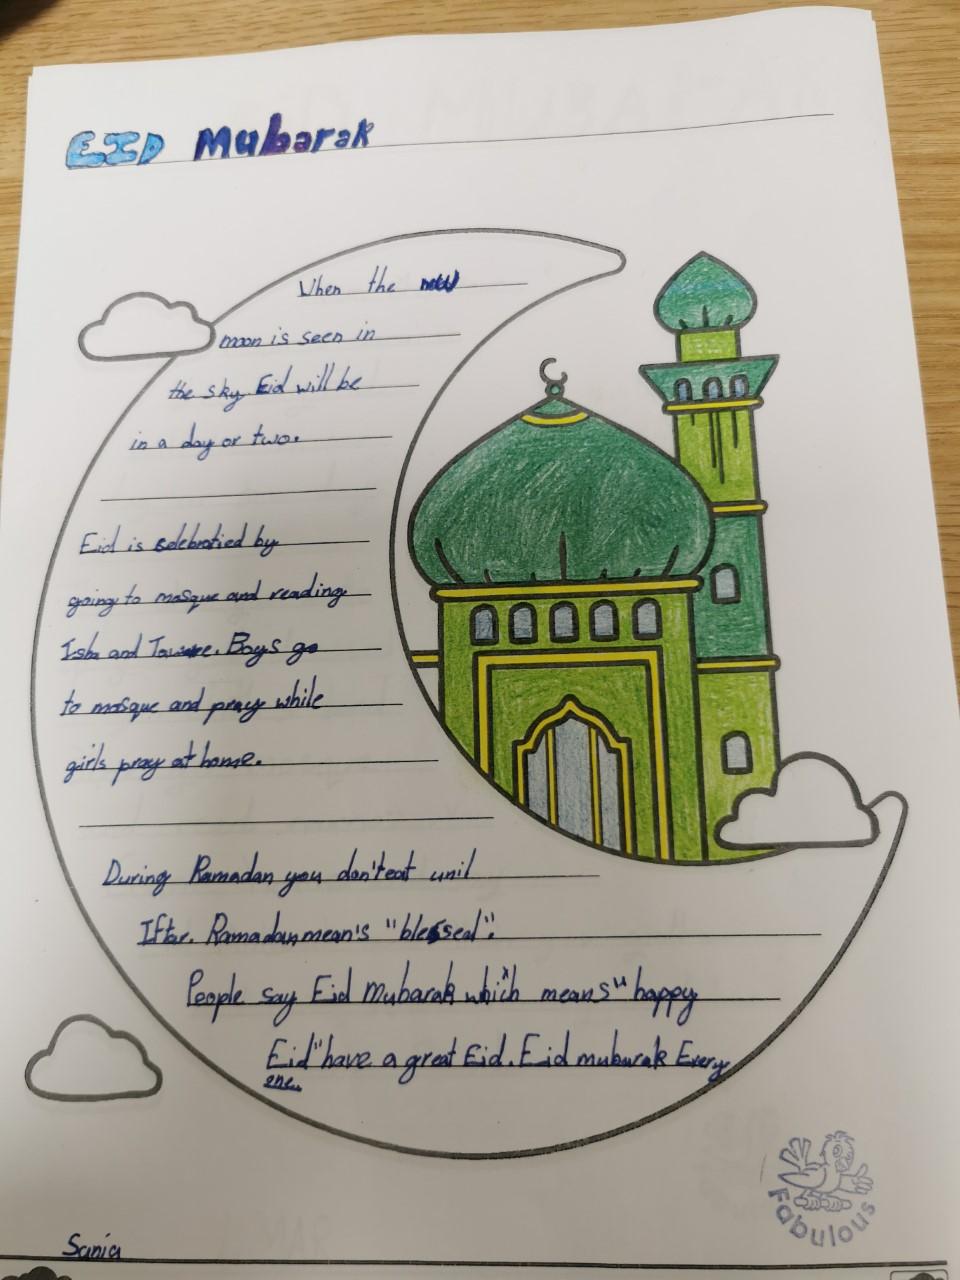 EID Mubarak
When the new
moon is seen in
the sky Eid will be
in a day or two.
Eid is celebratied by
going to mosque and reading
Isha and . Boys go
to mosque and pray while
girls pray at home.
During Ramadan you don't eat unil
Iftar. Ramadan mean's "blessed".
People say Eid Mubarak which means "happy
Eid" have a great Eid. Eid mubarak Every
one.
Fabulous
Sania